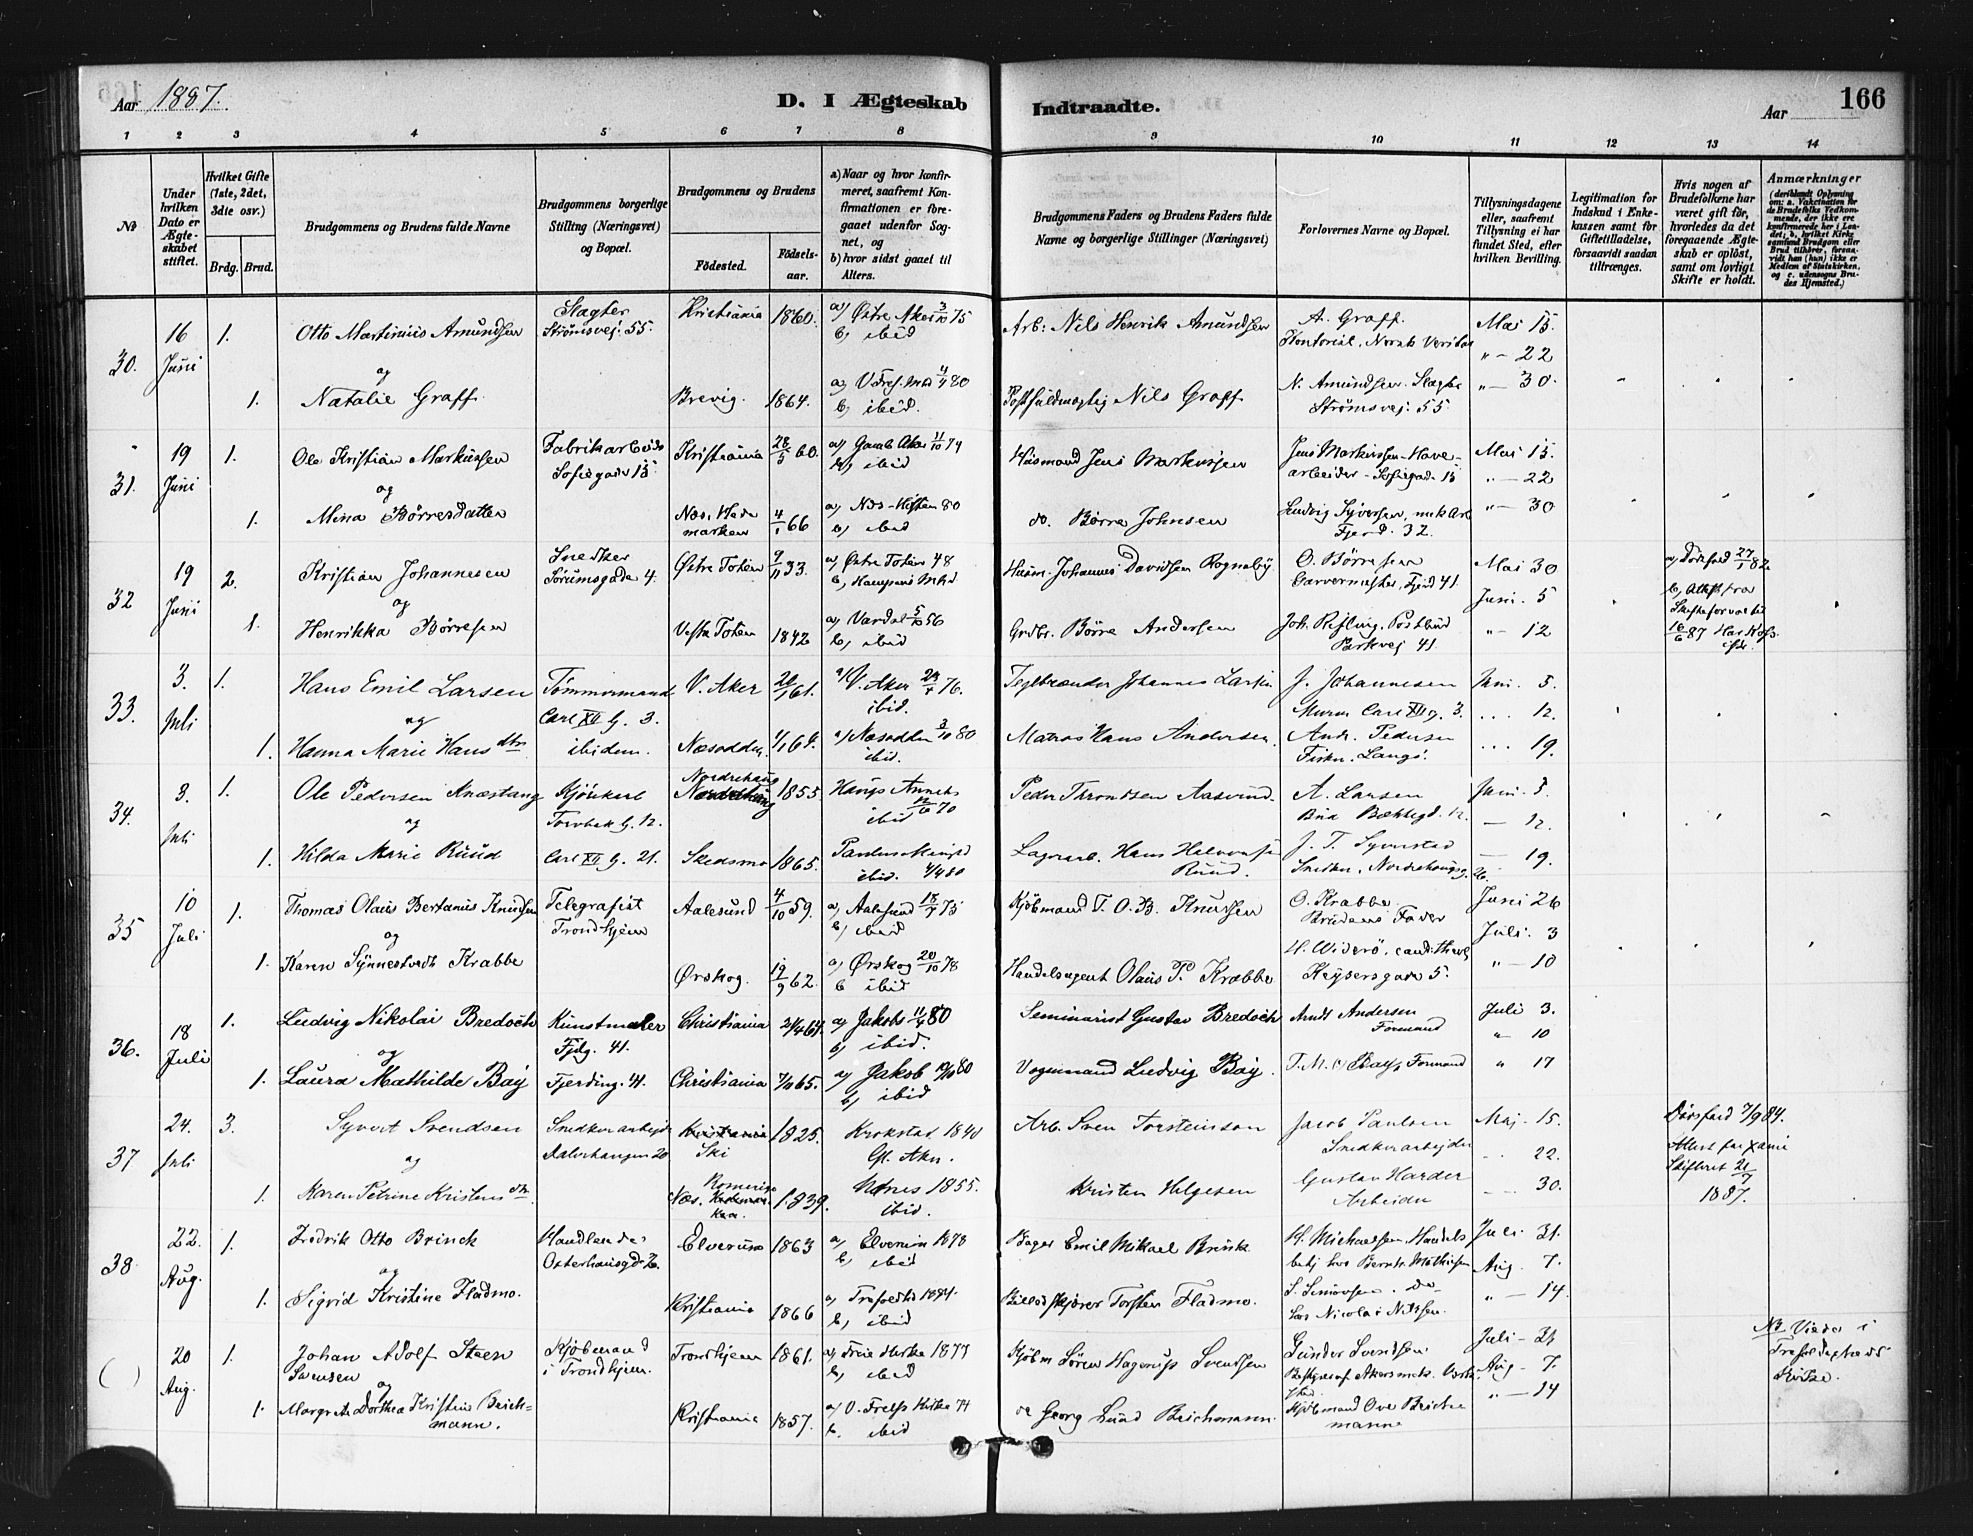 Aar 1887.
D. I Ægteskab Indtraadte.
Aar
166
1 2 3 4 5 6 7 8 9 10 11 12 13 14
№
Under hvilken Dato er Ægteskabet stiftet.
Hvilket Gifte (1ste, 2det, 3die osv.)
Brdg. Brud.
Brudgommens og Brudens fulde Navne
Brudgommens borgerlige Stilling (Næringsvei) og Bopæl.
Brudgommens og Brudens
Födested.
Födselsaar.
a) Naar og hvor konfirmeret, saafremt Konfirmationen er foregaaet udenfor Sognet, og
b) hvor sidst gaaet til Alters.
Brudgommens Faders og Brudens Faders fulde Navne og borgerlige Stillinger (Næringsvei)
Forlovernes Navne og Bopæl.
Tillysningsdagene eller, saafremt Tillysning ei har fundet Sted, efter hvilken Bevilling.
Legitimation for Indskud i Enkekassen samt for Giftetilladelse, forsaavidt saadan tiltrænges.
Hvis nogen af Brudefolkene har været gift før, hvorledes da det foregaaende Ægteskab er opløst, samt om lovligt Skifte er holdt.
Anmærkninger
(deriblandt Oplysning om: a. Vakcination for de Brudefolks Vedkommende, der ikke ere konfirmerede her i Landet; b. hvilket Kirkesamfund Brudgom eller Brud tilhører, forsaavidt han (hun) ikke er Medlem af Statskirken, og c. udensogns Brudes Hjemsted.)
30. 16 Juni 1. Otto Martinius Amundsen Slagter Strømsvej. 55. Kristiania 1860. a) Østre Aker 3/10 75 b) ibid Arb: Nils Henrik Amundsen A. Graff. Kontorist, Norsk Veritas Mai 15. " – 22
og
1. Natalie Graff. Brevig. 1864. b) ibid. Postfuldmægtig Nils Graff N. Amundsen. Slagter Strømsvej. 55 " – 30.
31. 19 Juni 1. Ole Kristian Markussen Fabrikarbeider Sofiegade 15 Kristiania 28/5 60. a) Gamle Aker 11/10 74 b) ibid Husmand Jens Markussen Jens Markussen – Havearbeider – Sofiegade 15 Mai 15. " – 22
og
1. Mina Børresdatter Næs, Hedemarken 4/1 66 b) ibid do. Børre Johnsen Ludvig Syversen, Fjerd. 32. " – 30
32 19 Juni 2. Kristian Johannesen Snedker Sørumsgade 4. Østre Toten 9/11 33. a) Østre Toten 48 Husm. Johannes Davidsen Rogneby O. Børresen Garvermester, Fjerd 41. Mai 30 Juni. 5 a) Dødsfald 27/1 82
og
1. Henrikka Børresen Vestre Toten 1842 a) Vardal 5/10 56 b) ibid Grdbr. Børre Andersen Joh. Rifling. Postbud Parkvej 41. " – 12 b) Attest fra Skifteforvalter 16/6 87
33. 3. Juli 1. Hans Emil Larsen Tömmermand Carl XII G. 3. V. Aker 61. V. Aker 76. ibid. Teglbrænder Johannes Larsen J. Johannesen Murer Carl XII G. 3. Juni. 5. ... 12.
og
1. Hanna Marie Hans dtr ibidem. Næsodden. 1/1 64. a) Næsodden 3/10 80 ibid. Matros Hans Andersen. Andr. Pedersen ... 19.
34. 3. Juli 1. Ole Pedersen Kjörekarl Torvbak G. 12. Nordrehaug 1855 70 Peder Throndsen A. Larsen Juni. 5. — 12.
og
1. Hilda Marie Ruud Carl XII G. 21. Skedsmo 1865. ibid. 4/4 80 Lagerarb. Hans Halvorsen Ruud. J. T. Syverstad Snedker. Nordrehaugsg. 26. — 19.
35 10 Juli 1. Thomas Olaus Bertanus Knudsen Telegrafist Trondhjem Aalesund 4/10 59. a) Aalesund 75 b) ibid Kjøbmand T. O. B. Knudsen O. Krabbe. Brudens Fader Juni 26 Juli. 3
og
1. Karen Synnestvedt Krabbe Ørskog. 19/9 62. a) Ørskog 20/10 78 b ibid Handelsagent Olaus P. Krabbe H. Widerö, cand. theol Keysersgade 5. " – 10
36. 18 Juli 1. Ludvig Nikolai Bredoch Kunstmaler Fjdg. 41. Christiania 64. a) Jakobs 11/4 80 b) ibid. Seminarist Gustav Bredoch Arndt Andersen Formand Juli 3. " 10
og
1. Laura Mathilde Bay Fjerding. 41. Christiania 7/10 65. a) Jakob 80 b) ibid Vognmand Ludvig Bay. Formand " 17
37 24. Juli 3. Syvert Svendsen Snedkerarbejder Dælenhaugen 20 Kristiania Ski 1825. Krokstad. 1840 Gl. Aker. Arb. Sven Torsteinson Jacob Paulsen Snedkerarbejder Maj. 15. 22. Dødsfald 7/9 84.
og
1. Maren Petrine Kristens dtr. Næs. Romerike 1839. 1855. ibid. Kristen Helgesen Gustav Harder Arbeider 30. Skifteret 21/7 1887.
38 22. Aug. 1. Fredrik Otto Brinck Handlende Osterhausgd. 2. Elverum 1863 a) Elverum 1878 b) ibid Bager Emil Mikael Brinck H. Michaelsen, Handelsbetj hos Bernts. Mathisen Juli 31. Aug. 7.
og
1. Sigrid Kristine Fladmo. Kristiania 1866 a) b) ibid Billedskjærer Torsten Fladmo. S. Simonsen. do Lars Nicolai Nilssen. " – 14
( ) 20 Aug. 1. Johan Adolf Steen Svensen Kjøbmand i Trondhjem. Trondhjem 1861. 1877 b) ibid Kjøbm Søren Hagerup Svendsen Gunder Svendsen Juli – 31 Aug – 7. NB. Viede i Trefoldigheds Kirke.
og
1. Margrete Dorthea Kristine Brichmann. Kristiania 1857. a) V. Frelss Kirke 74 b. ibid do Georg Lund Brichmann. Kjøbmand Ove Brichmann " – 14